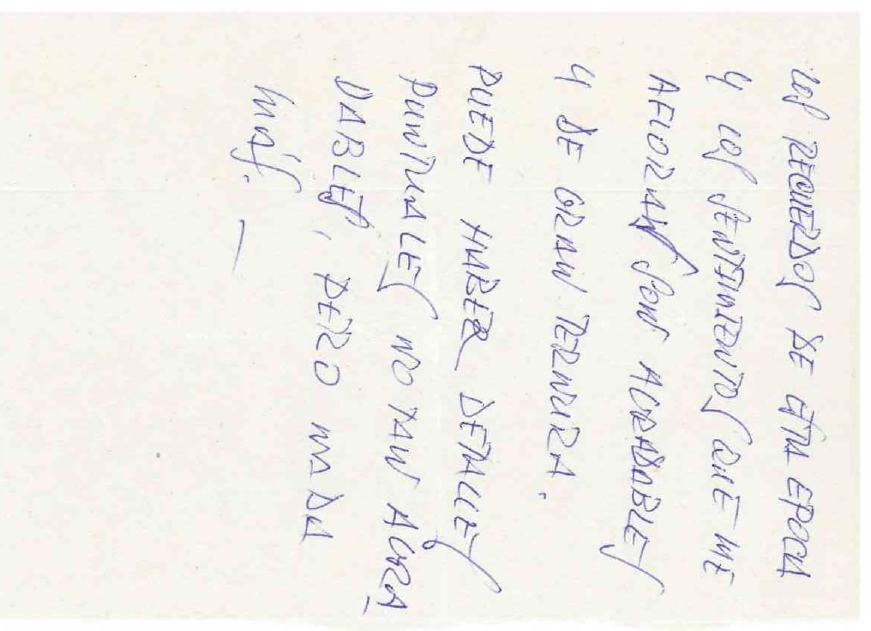 LOS RECUERDOS DE ESTA EPOCA
Y LOS SENTIMIENTOS QUE ME
AFLORAN SON AGRADABLES
Y DE GRAN TERNURA.
PUEDE HABER DETALLES
PUNTUALES NO TAN AGRA_
DABLES, PERO NADA
MÁS. _